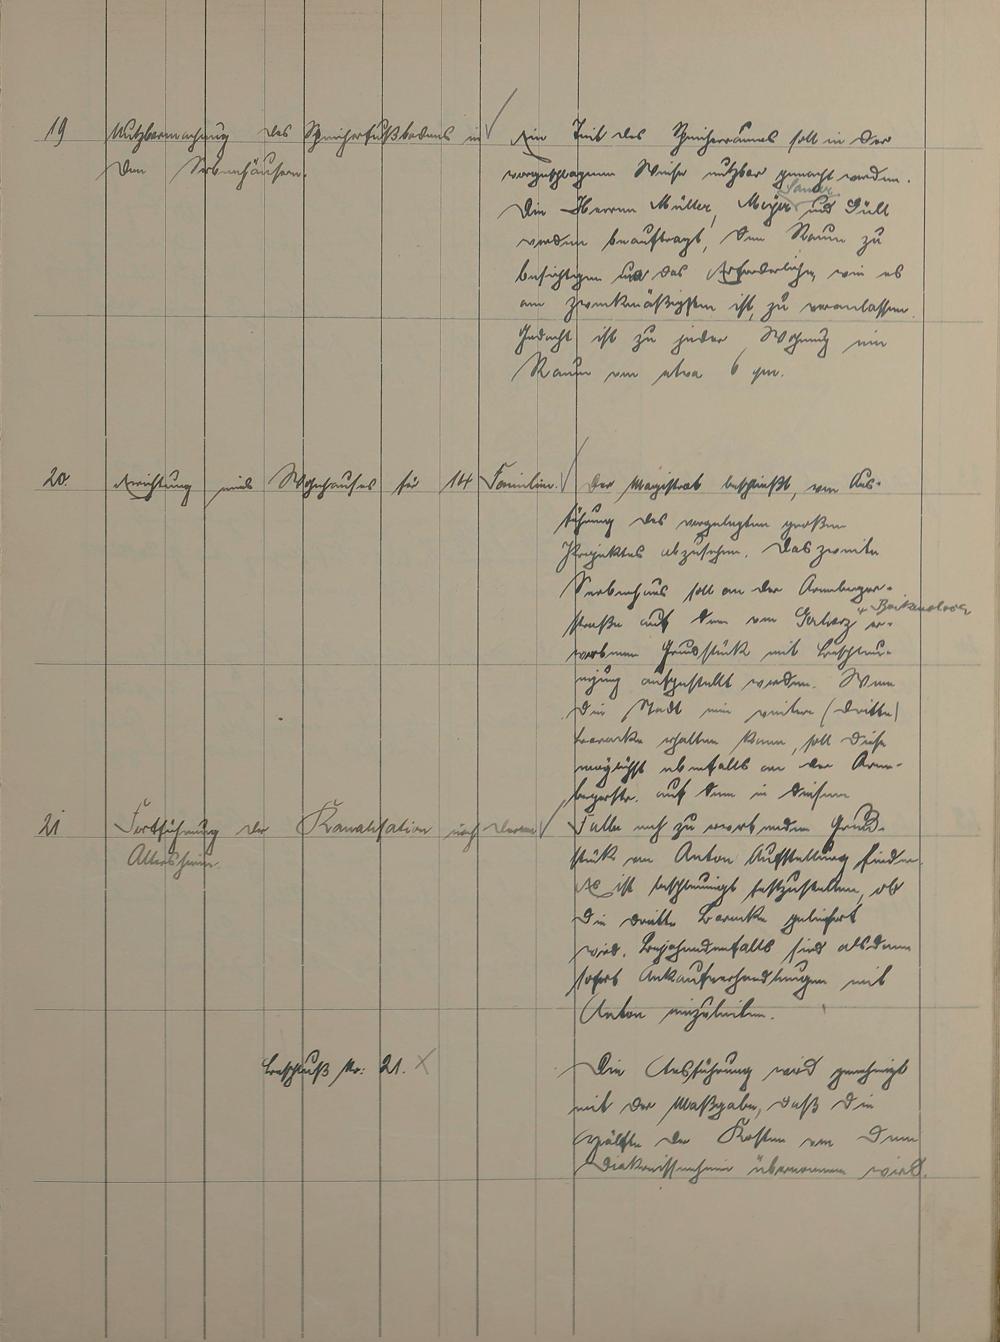 19 Nutzbarmachung des Speicherfußbodens in
den Siebenhäusern.
Ein Teil des Speicherraumes soll in der
vorgeschlagenen Weise nutzbar gemacht werden.
Die Herren Müller, Meyer, und Güll
werden beauftragt, den Raum zu
besichtigen und das Erforderliche, wie es
am zweckmäßigsten ist, zu veranlassen.
Gedacht ist zu jeder Wohnung ein
Raum von etwa 6 qm.
20. Errichtung eines Wohnhauses für 14 Familien.
Der Magistrat beschließt, von Aus-
führung des vorgelegten großen
Projektes abzusehen. Das zweite
soll an der
straße auf dem von er-
worbenen Grundstück mit Beschleu-
nigung aufgestellt werden. Wenn
die Stadt eine weitere (dritte)
Baracke erhalten kann, soll diese
möglichst ebenfalls an der
auf dem in diesem
21 Fortführung der Kanalisation nach
Altersheim.
Falle noch zu erwerbenden Grund-
stück von Anton Aufstellung finden.
Es ist beschleunigt festzustellen, ob
die dritte Baracke geliefert
wird. Bejahendenfalls sind alsdann
sofort Ankaufverhandlungen mit
Anton einzuleiten.
Beschluß Nr: 21.
Die Ausführung wird genehmigt
mit der Maßgabe, daß die
Hälfte der Kosten von dem
Diakonissenheim übernommen wird.